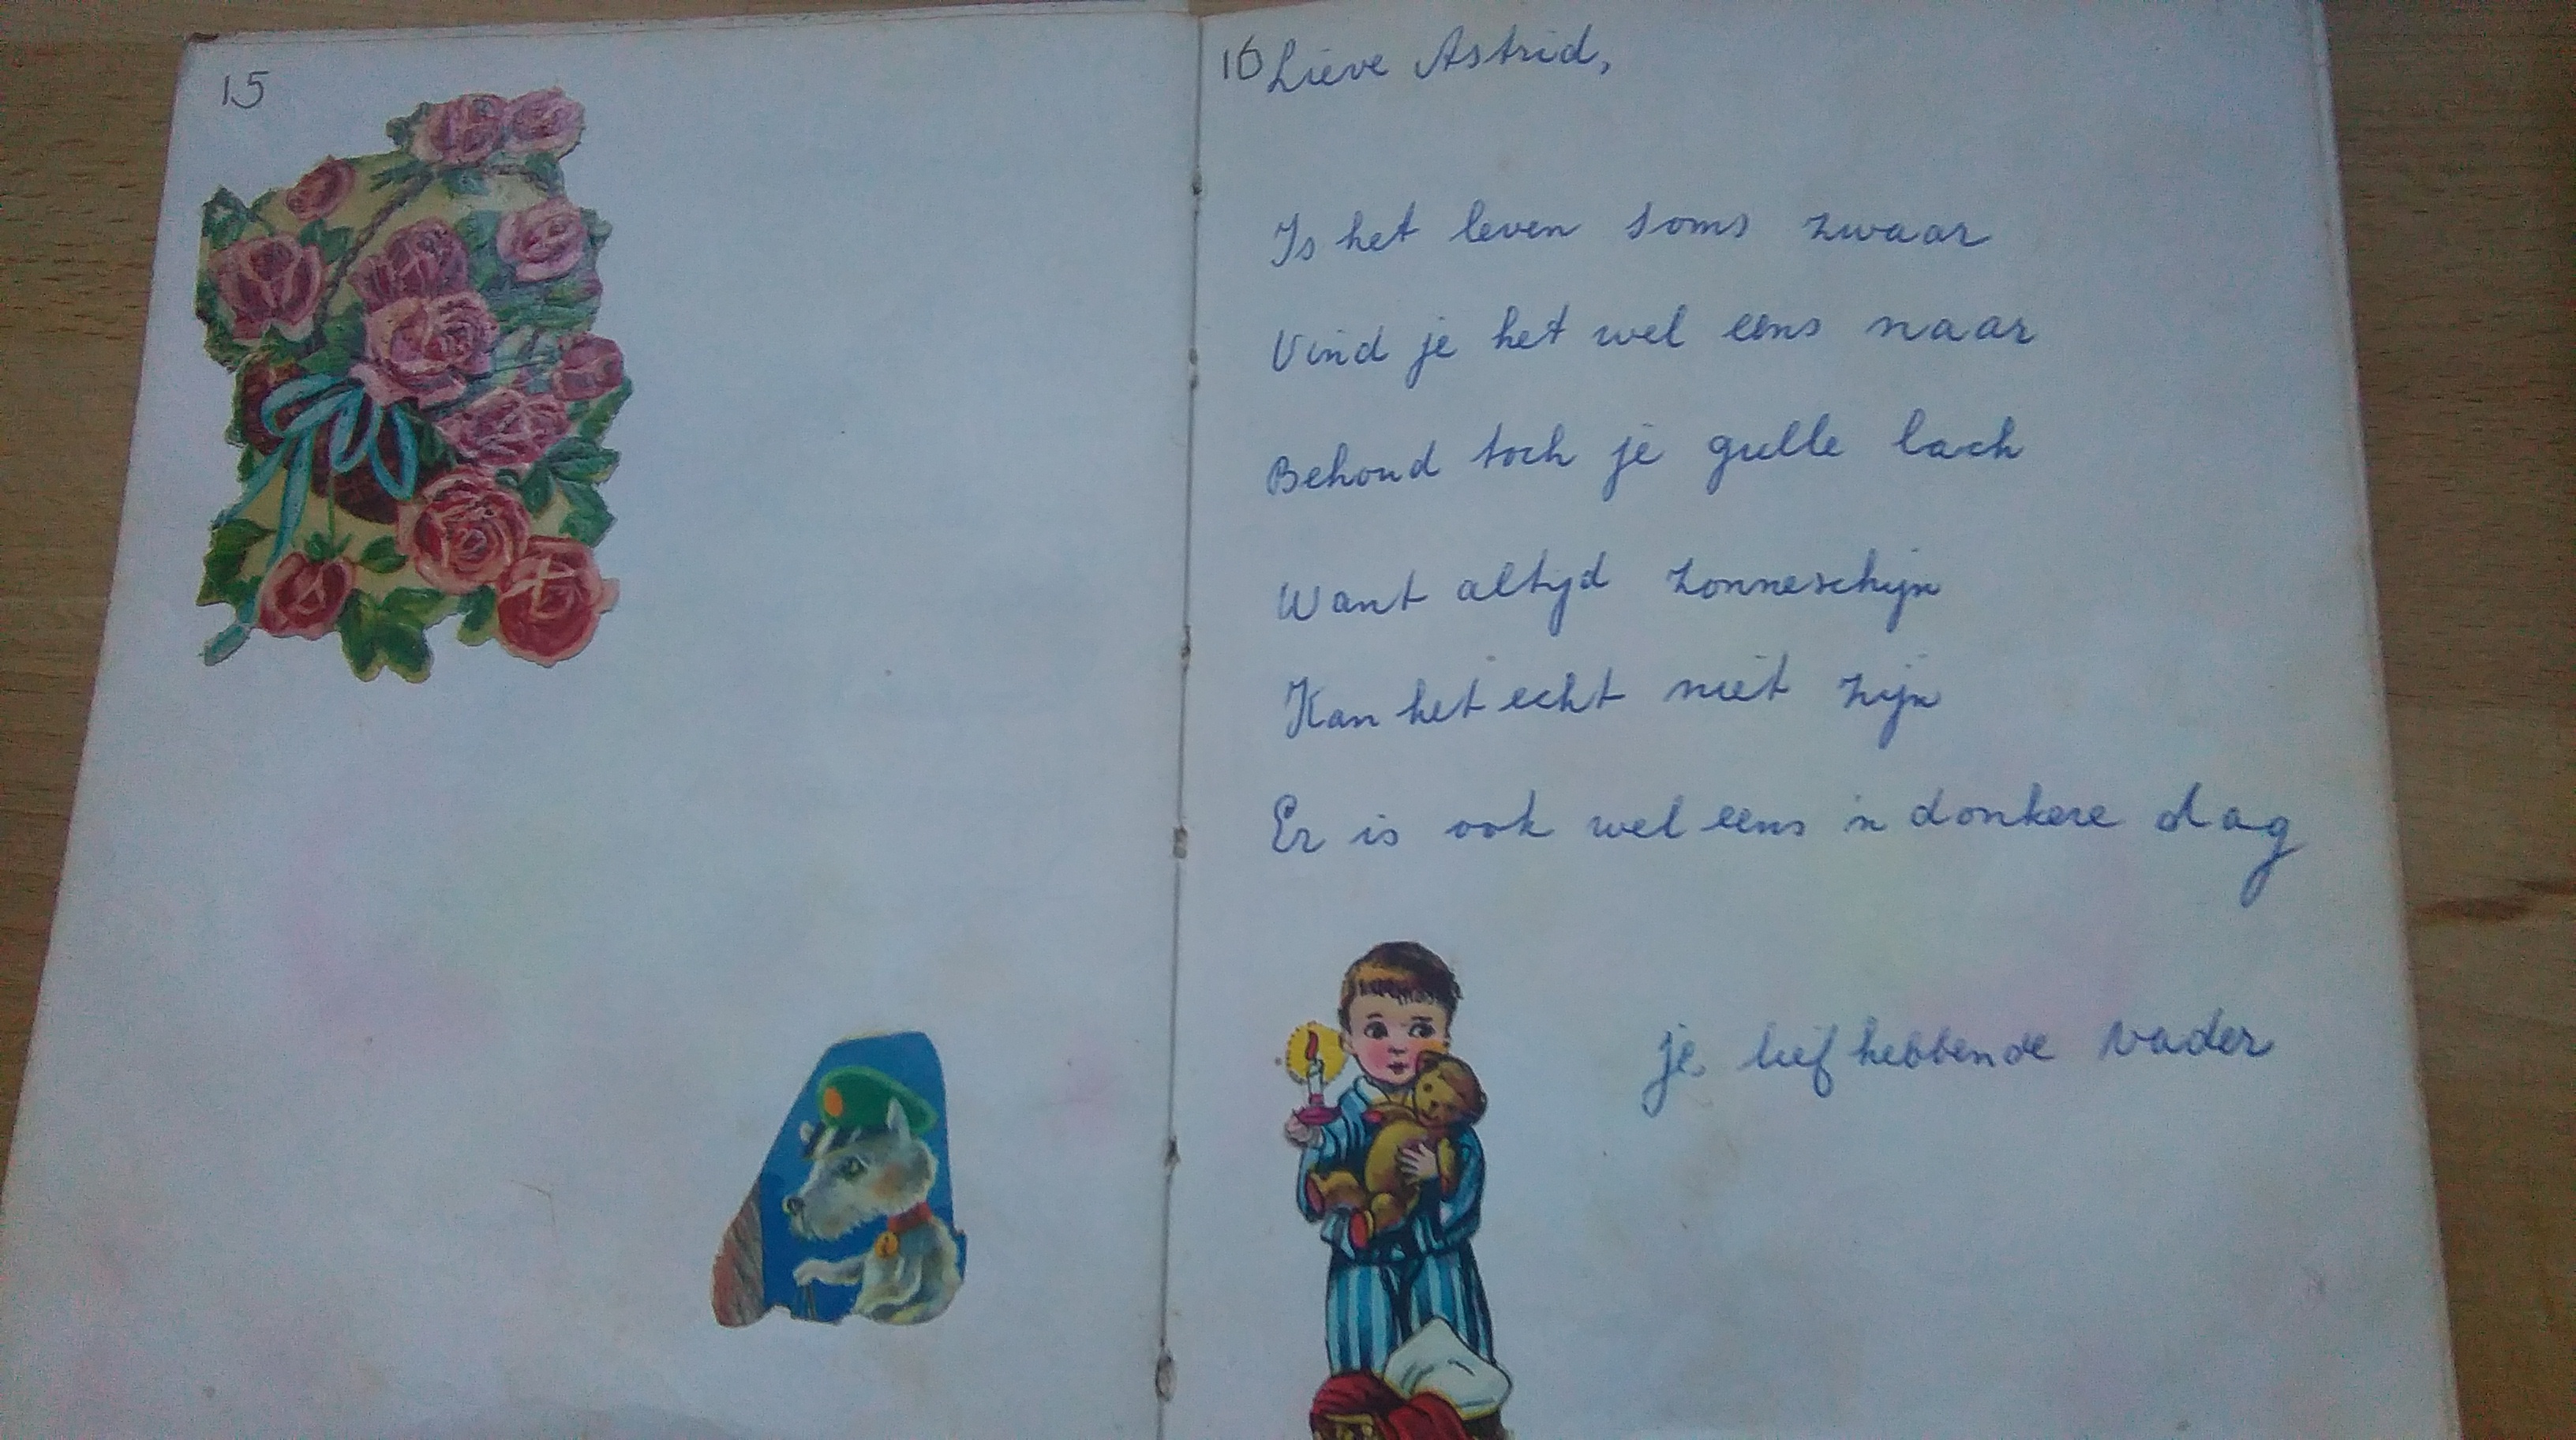 15
16 Lieve Astrid,
Is het leven soms zwaar
Vind je het wel eens naar
Behoud toch je gulle lach
Want altijd zonneschijn
Kan het echt niet zijn
Er is ook wel eens 'n donkere dag
je liefhebbende vader